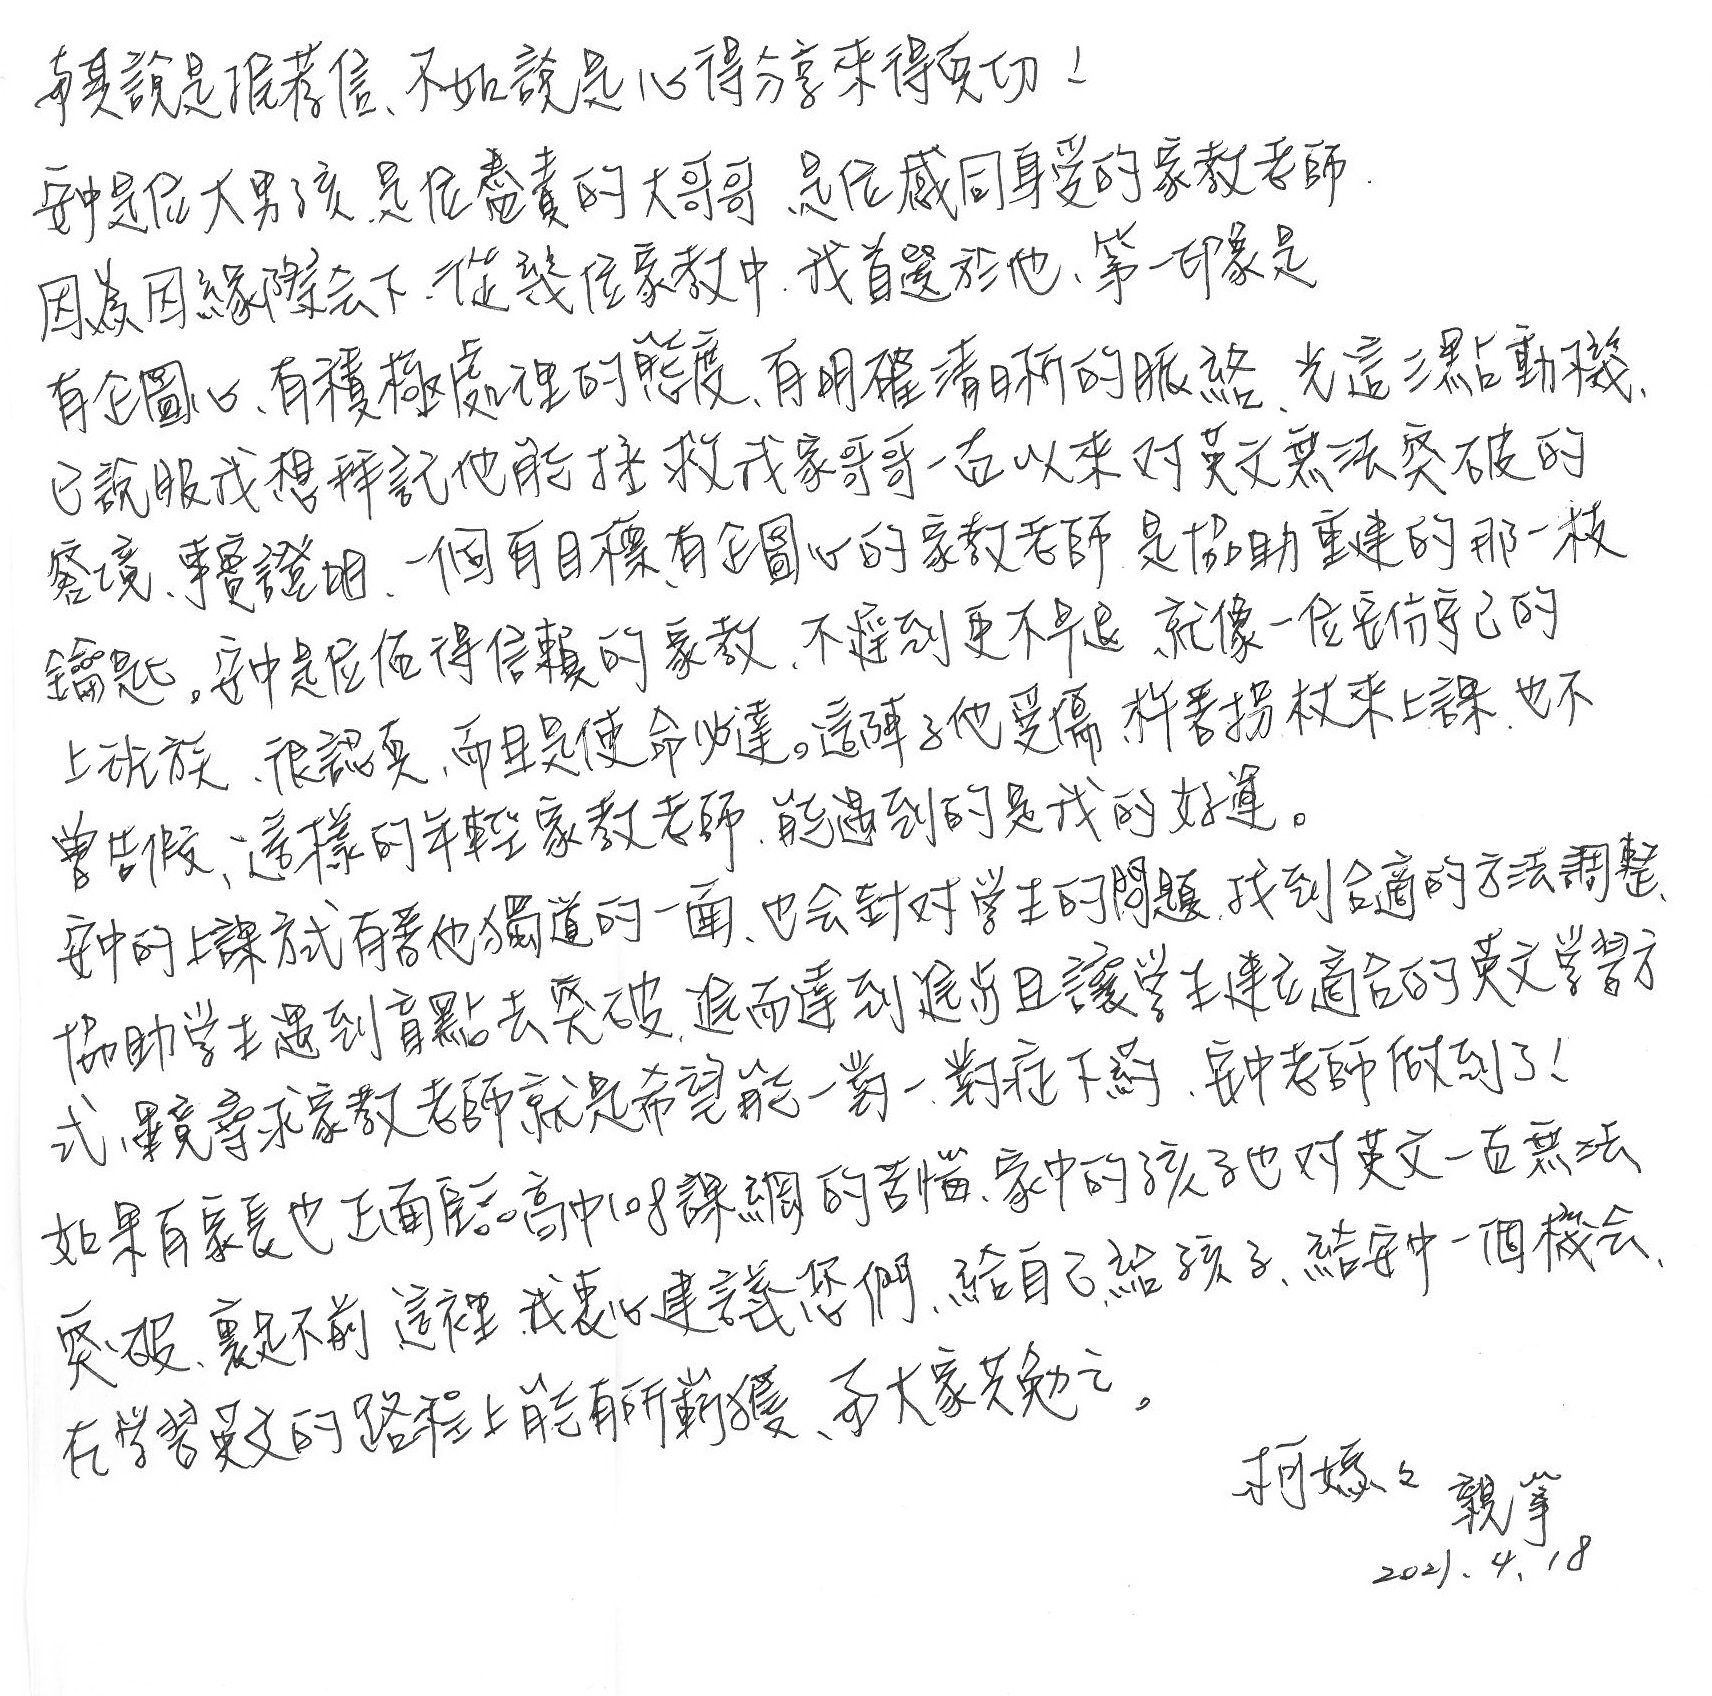 與其說是推荐信、不如說是心得分享來得真切！
安中是位大男孩 是位盡責的大哥哥 是位感同身受的家教老師.
因為因緣際会下.從幾位家教中.我首選於他、第一印象是
有企圖心、有積極處理的態度、有明確清晰的脈絡、光這三點動機、
已說服我想拜託他能拯救我家哥哥一直以來对英文無法突破的
窘境、事實證明、一個有目標、有企圖心的家教老師 是協助重建的那一枝
鑰匙。安中是位值得信賴的家教、不遲到更不早退、就像一位安份守己的
上班族、很認真、而且是使命必達。這陣子他受傷 杵著拐杖來上課、也不
曾告假、這樣的年輕家教老師、能遇到的是我的好運。
安中的上課方式有著他獨道的一面、也会針对学生的問題、找到合適的方法調整、
協助学生遇到盲點去突破、進而達到進步且讓学生建立適合的英文学習方
式、畢竟尋求家教老師就是希望能一對一、對症下葯、安中老師做到了！
如果有家長也正面臨高中108課綱的苦惱、家中的孩子也对英文一直無法
突破、裹足不前 這裡 我衷心建議您們、給自己、給孩子、給安中一個機会、
在学習英文的路程上能有所嶄獲、與大家共勉之。
柯媽々 親筆
2021.4.18